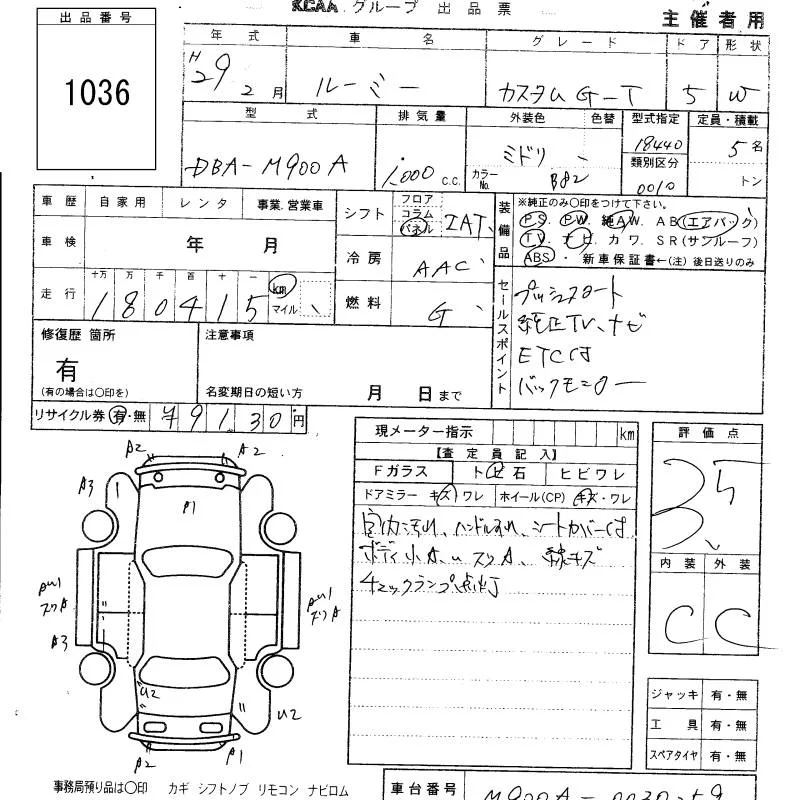 KCAA グループ 出品票
主催者用
出品番号
1036
年式 車名 グレード ドア 形状
H29 2月 ルーミー カスタムG-T 5 W
型式 排気量 外装色 色替 型式指定 定員・積載
DBA-M900A 1,000 c.c. ミドリ 18440 5名
カラーNo. B82 類別区分 0010 トン
車歴 自家用 レンタ 事業.営業車
シフト フロア コラム パネル IAT
車検 年 月
冷房 AAC
走行 十万 万 千 百 十 一
180415 km マイル
燃料 G
装備品
※純正のみ〇印をつけて下さい。
PS. PW. 純AW. AB(エアバック)
TV. ナビ カワ. SR(サンルーフ)
ABS ・ 新車保証書←(注) 後日送りのみ
セールスポイント
プッシュスタート
純正TV、ナビ
ETC
バックモニター
修復歴 箇所 注意事項
有
(有の場合は〇印を) 名変期日の短い方 月 日まで
リサイクル券 有・無 ¥9130円
現メーター指示 km
評価点
3.5
【査定員記入】
Fガラス トビ石 ヒビワレ
ドアミラー キズ ワレ ホイール(CP) キズ・ワレ
室内汚れ、ハンドルスレ、シートカバー
ボディ小A.U スリA、線キズ
チェックランプ点灯
内装 外装
C C
A2 A2
A3
A1
AU1 スリA
AU1 スリA
A3
U2
U2
A2 A1
ジャッキ 有・無
工具 有・無
スペアタイヤ 有・無
事務局預り品は〇印 カギ シフトノブ リモコン ナビロム
車台番号 M900A-0030